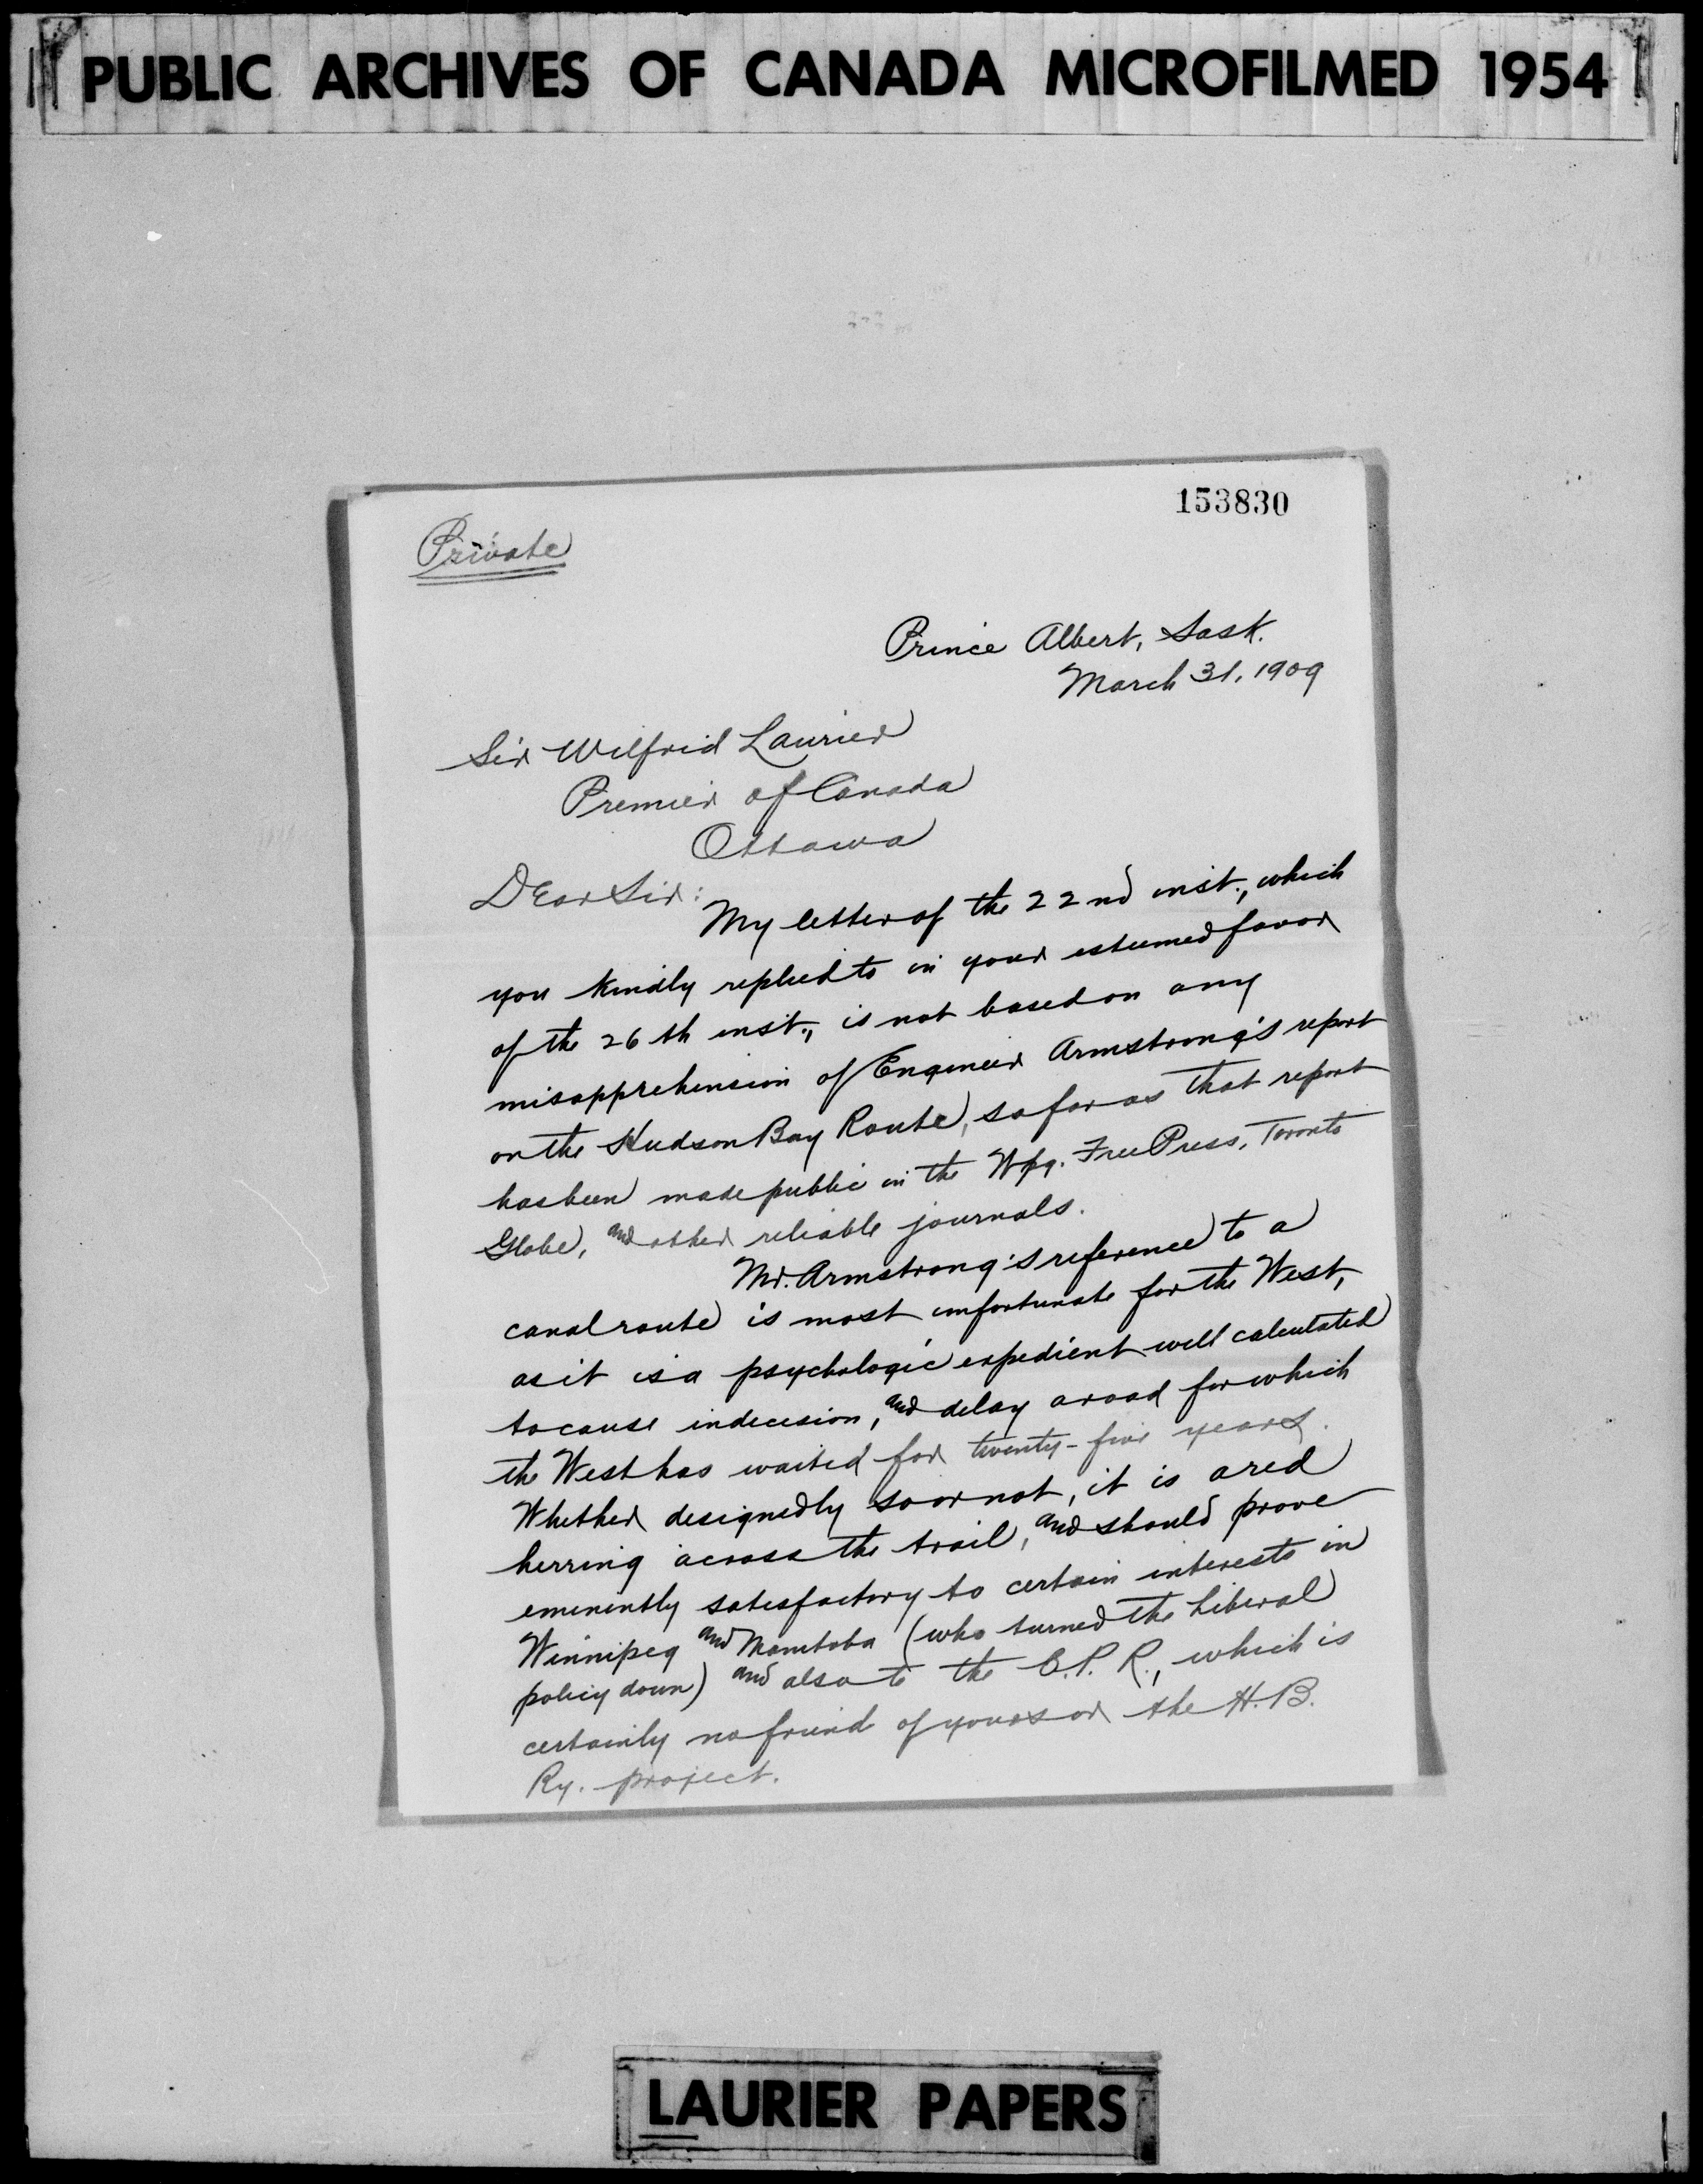 PUBLIC ARCHIVES OF CANADA MICROFILMED 1954
153830
Private
Prince Albert, Sask.
March 31, 1909
Sir Wilfrid Laurier
Premier of Canada
Ottawa
Dear Sir:
My letter of the 22nd inst., which
you kindly replied to in your esteemed favor
of the 26th inst., is not based on any
misapprehension of Engineer Armstrong's report
on the Hudson Bay Route, so far as that report
has been made public in the Wpg. Free Press, Toronto
Globe, and other reliable journals.
Mr. Armstrong's reference to a
canal route is most unfortunate for the West,
as it is a psychologic expedient well calculated
to cause indecision, and delay a road for which
the West has waited for twenty-five years.
Whether designedly so or not, it is a red
herring across the trail, and should prove
eminently satisfactory to certain interests in
Winnipeg and Manitoba (who turned the Liberal
policy down) and also to the C.P.R., which is
certainly no friend of yours or the H.B.
Ry. project.
LAURIER PAPERS